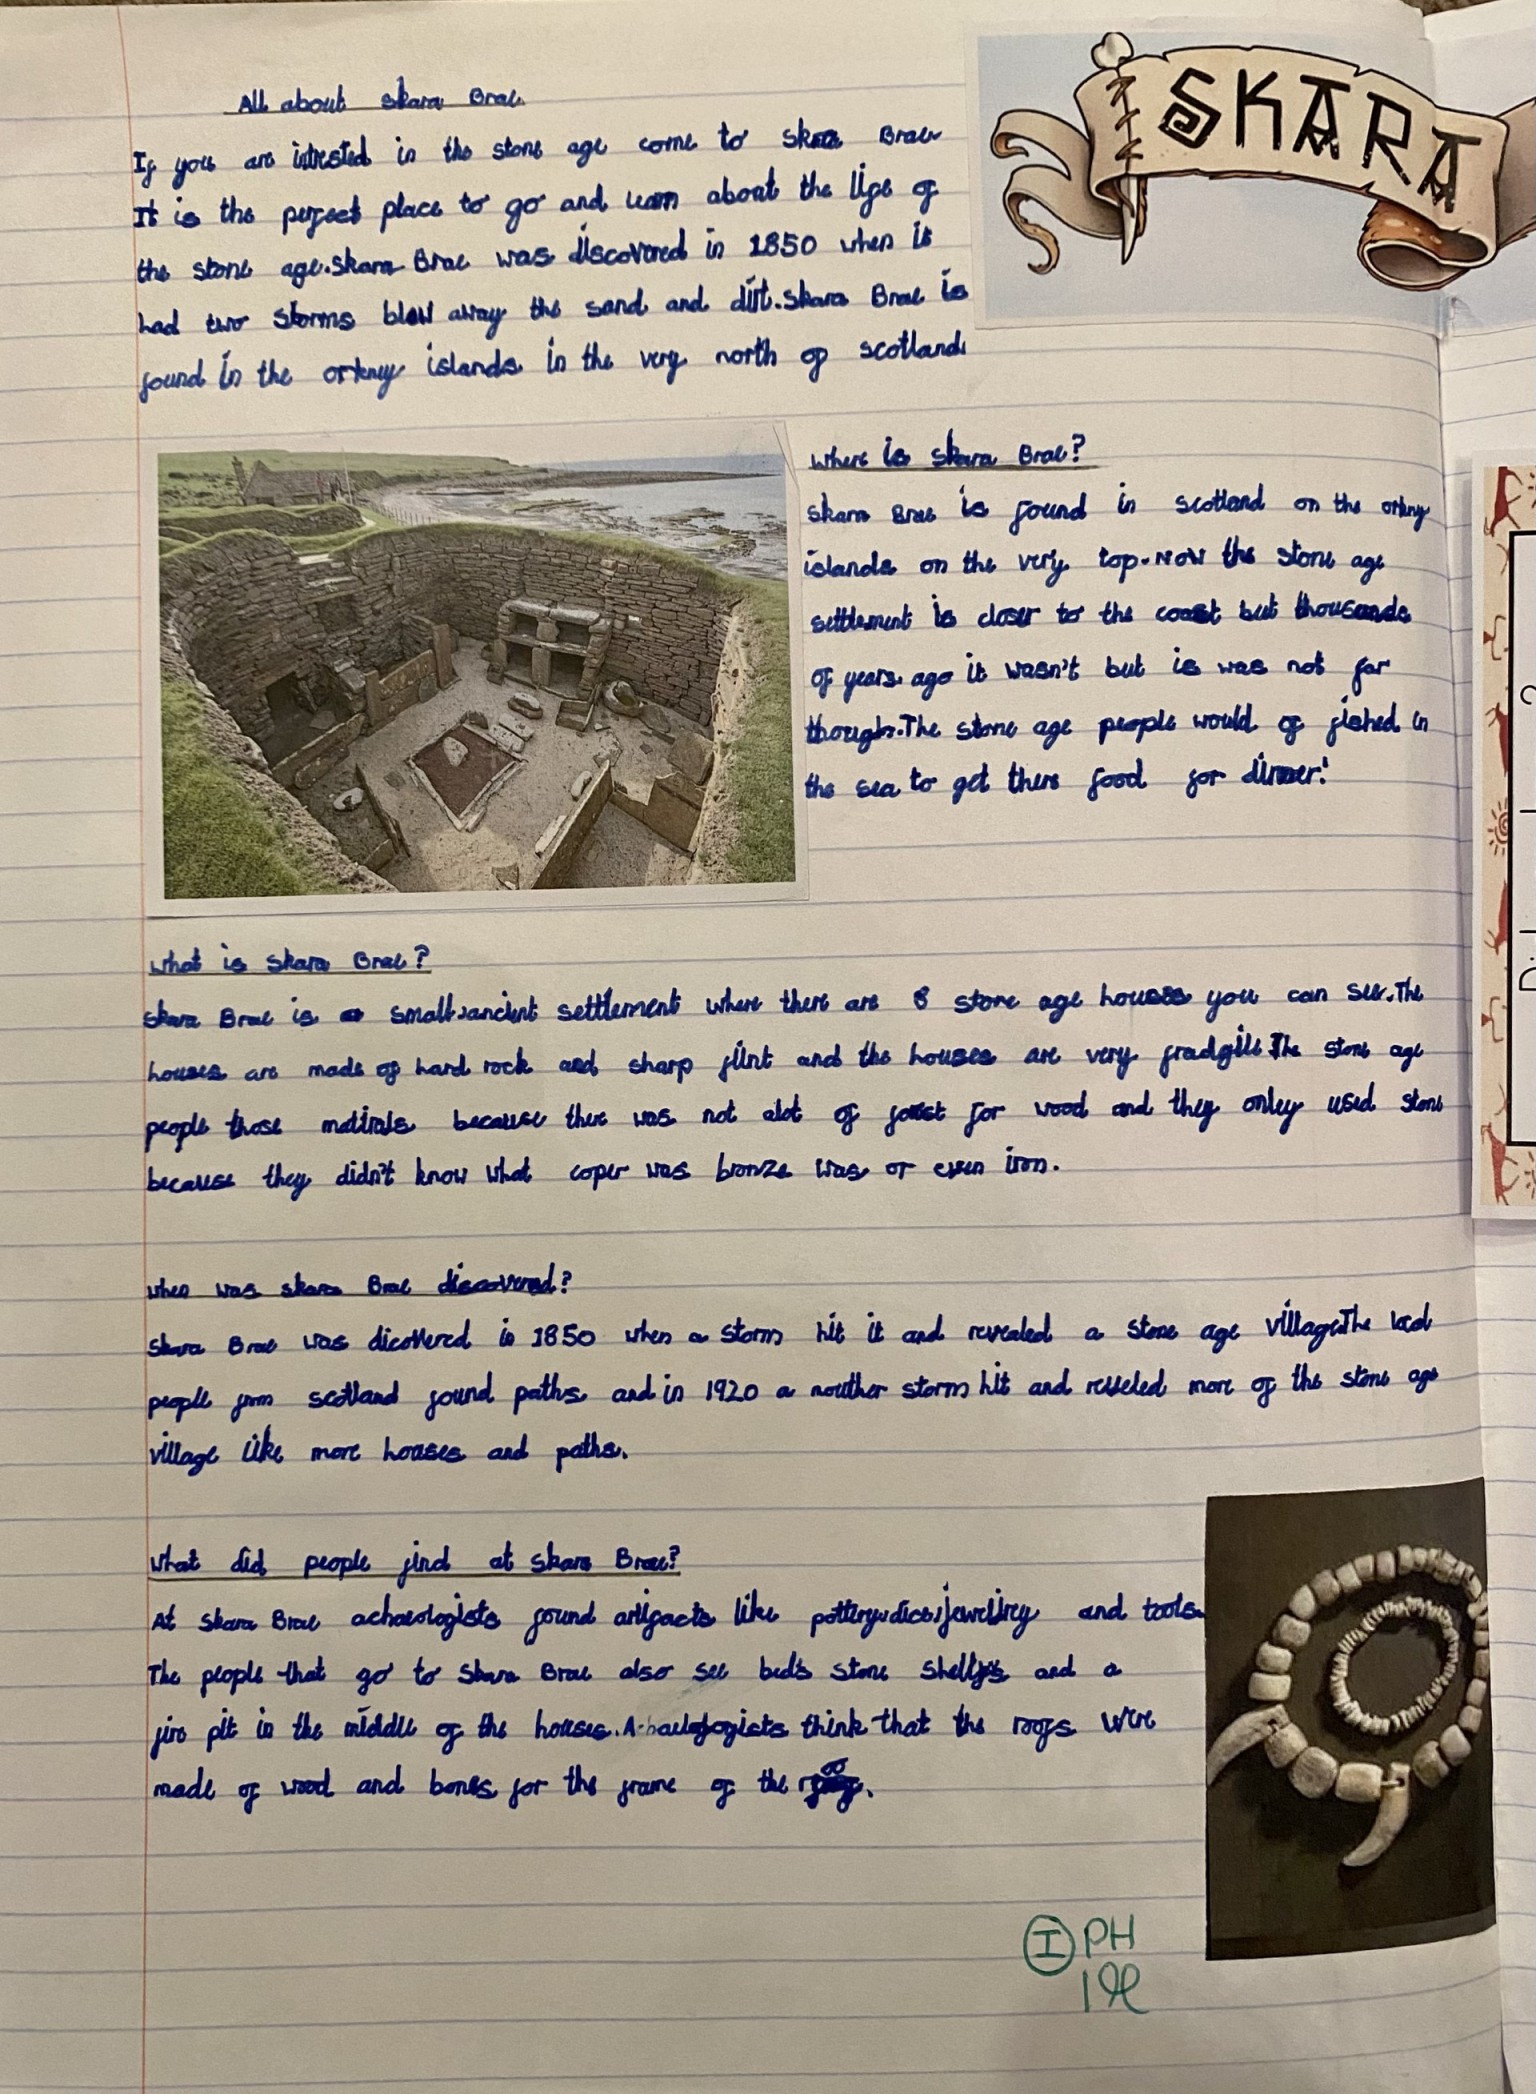 SKARA
All about Skara Brae.
If you are intrested in the stone age come to Skara Brae.
It is the perfect place to go and learn about the life of
the stone age. Skara Brae was discovered in 1850 when it
had two storms blow away the sand and dirt. Skara Brae is
found in the orkney islands in the very north of scotland.
Where is Skara Brae?
Skara Brae is found in scotland on the orkny
islands on the very top. Now the stone age
settlement is closer to the coast but thousands
of years ago it wasn't but is was not far
though. The stone age people would of fished in
the sea to get there food for dinner!
What is Skara Brae?
Skara Brae is a small, ancient settlement where there are 8 stone age houses you can see. The
houses are made of hard rock and sharp flint and the houses are very fradgile. The stone age
people those matirals because there was not alot of forest for wood and they only used stone
because they didn't know what coper was bronze was or even iron.
When was Skara Brae discovered?
Skara Brae was dicovered in 1850 when a storm hit it and revealed a stone age village. The local
people from scotland found paths and in 1920 a nouther storm hit and reveled more of the stone age
village like more houses and paths.
What did people find at Skara Brae?
At Skara Brae achaeologists found artifacts like pottery, dice, jewellrey and tools.
The people that go to Skara Brae also see bed's stone shelfs and a
fire pit in the middle of the houses. think that the roofs were
made of wood and bones for the frame of the
I PH